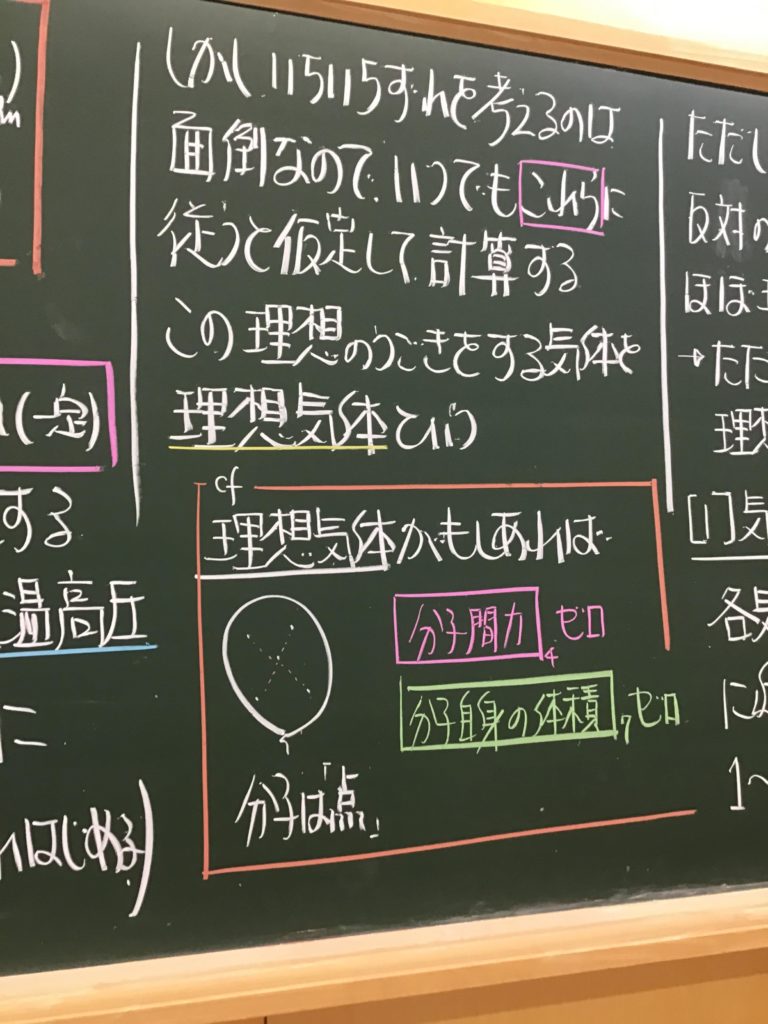 (一定)
する
温高圧
に
はじめる)
しかしいちいちずれを考えるのは
面倒なので、いつでもこれらに
従うと仮定して計算する
この理想のうごきをする気体を
理想気体という
cf
理想気体がもしあれば
分子間力 ゼロ
4
分子自身の体積 ゼロ
7
分子は「点」
ただし
反対の
ほぼ理
→ただ
理想
[1]気
各気
に
1〜